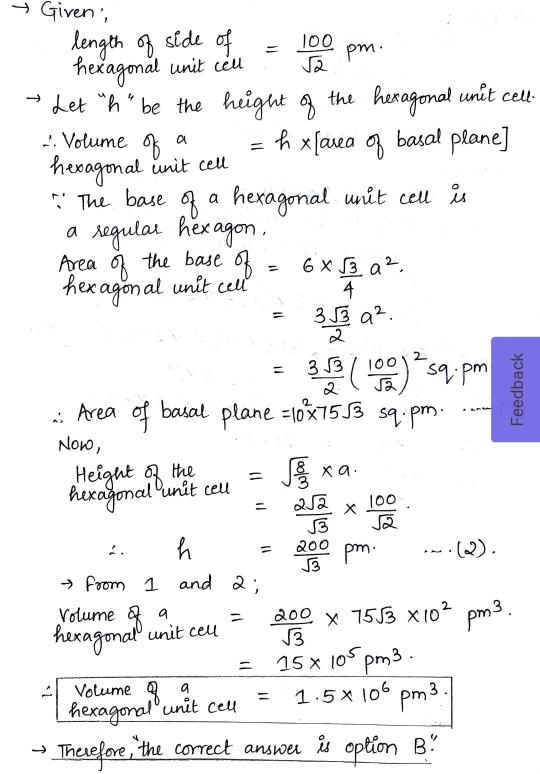 → Given:,
length of side of hexagonal unit cell = 100/√2 pm.
→ Let "h" be the height of the hexagonal unit cell.
∴ Volume of a hexagonal unit cell = h × [area of basal plane]
∵ The base of a hexagonal unit cell is
a regular hexagon.
Area of the base of hexagonal unit cell = 6 × √3/4 a².
= 3√3/2 a².
= 3√3/2 (100/√2)² sq.pm
∴ Area of basal plane = 10² × 75√3 sq.pm. ----
Now,
Height of the hexagonal unit cell = √(8/3) × a.
= 2√2/√3 × 100/√2 .
∴ h = 200/√3 pm. ----(2).
→ from 1 and 2;
Volume of a hexagonal unit cell = 200/√3 × 75√3 × 10² pm³.
= 15 × 10⁵ pm³.
∴ Volume of a hexagonal unit cell = 1.5 × 10⁶ pm³.
→ Therefore, "the correct answer is option B."
Feedback